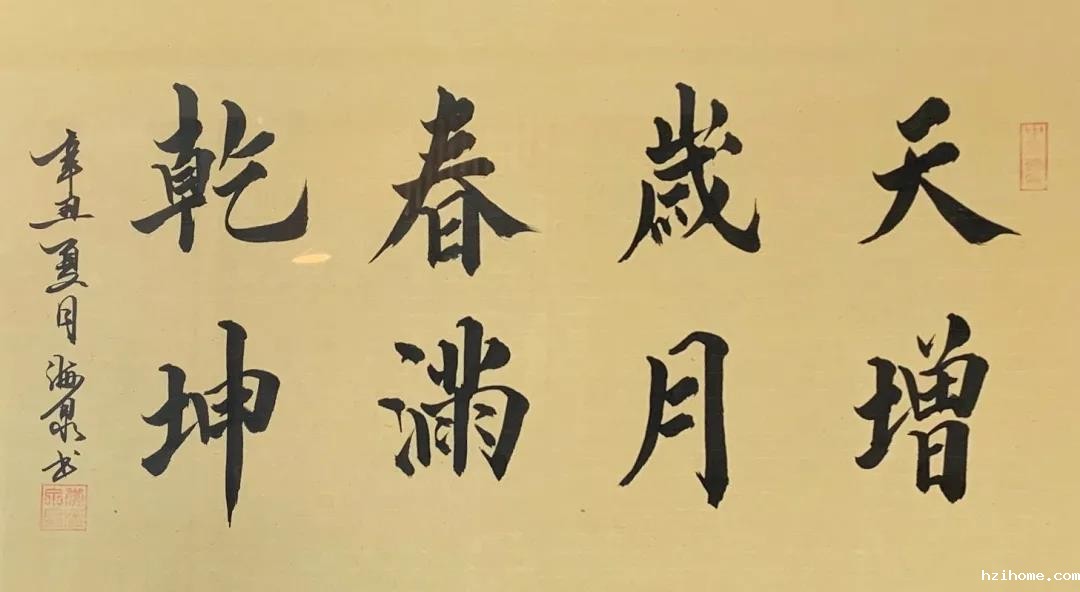 天增
歲月
春滿
乾坤
辛丑夏月海泉书
hzihome.com